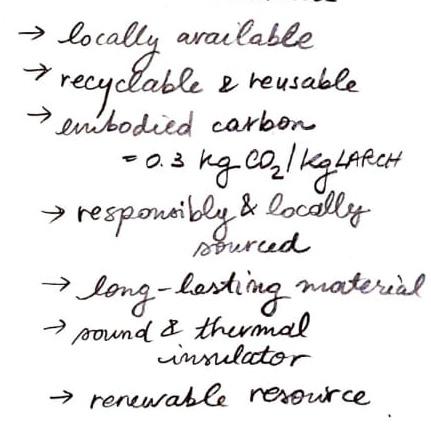 → locally available
→ recyclable & reusable
→ embodied carbon
= 0.3 kg CO₂/kg LARCH
→ responsibly & locally
sourced
→ long-lasting material
→ sound & thermal
insulator
→ renewable resource